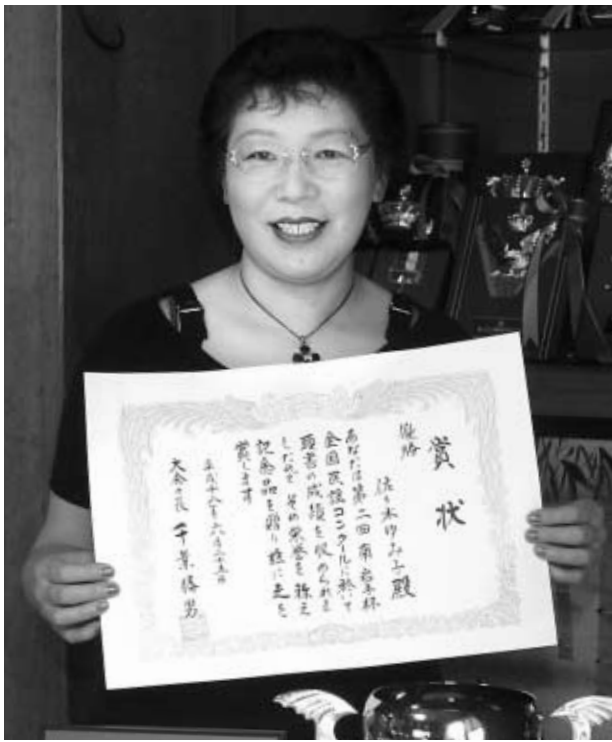 賞状
優勝
佐々木ゆみ子殿
あなたは第二回南岩手杯
全国民謡コンクールに於て
頭書の成績を収められま
したので その栄誉を称え
記念品を贈り茲に之を
賞します
平成十八年六月二十五日
大会々長 千葉勝男